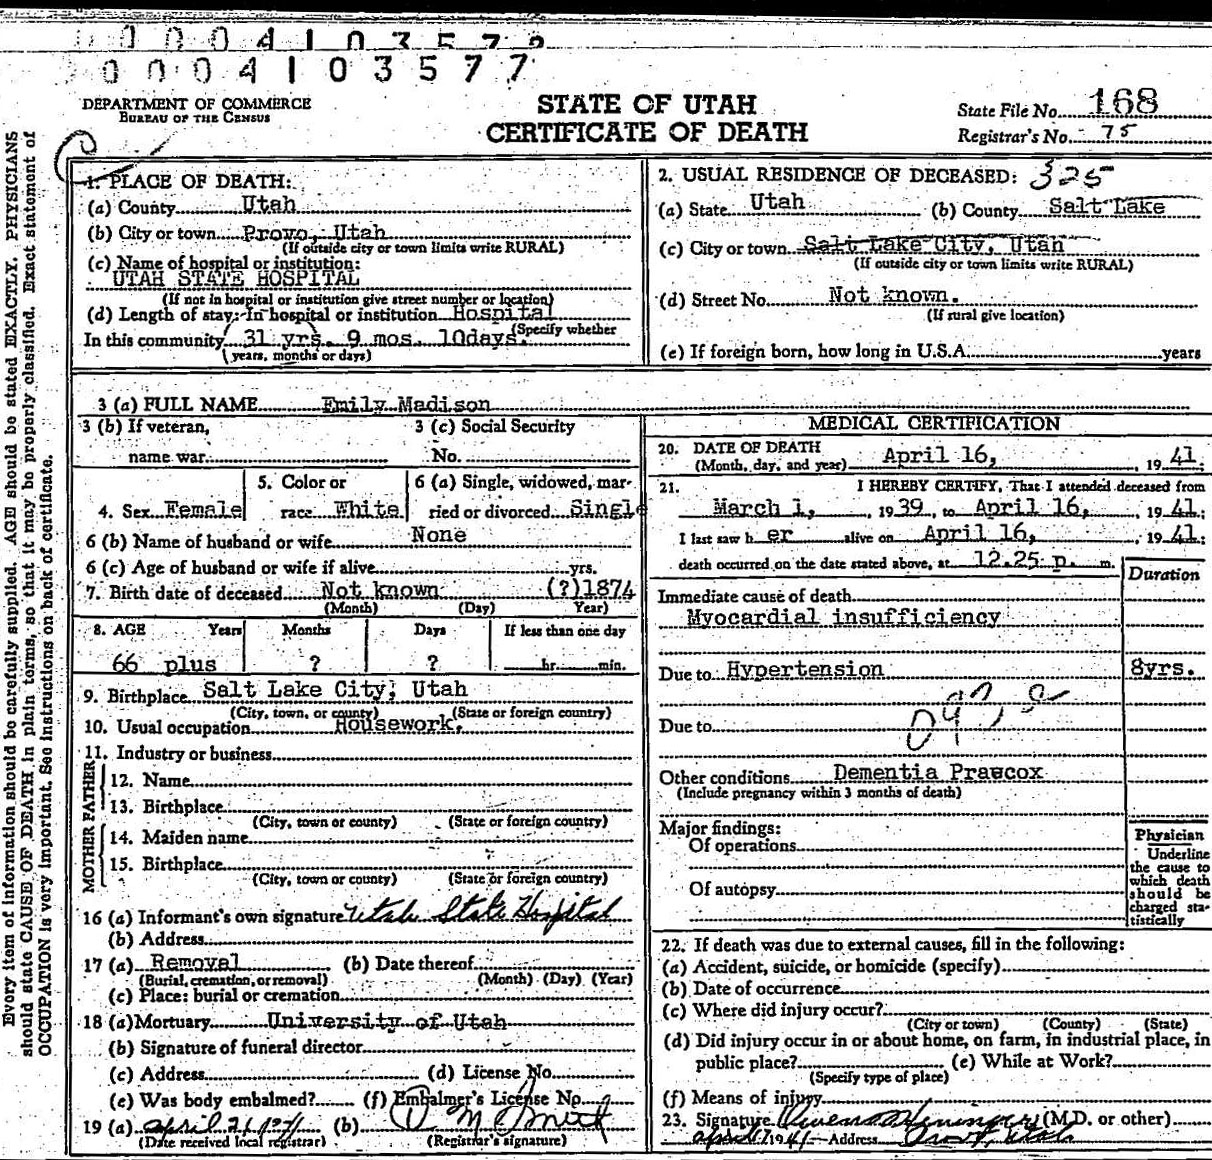 0 0 0 4 1 0 3 5 7 2
0 0 0 4 1 0 3 5 7 7
DEPARTMENT OF COMMERCE
BUREAU OF THE CENSUS
STATE OF UTAH
CERTIFICATE OF DEATH
State File No. 168
Registrar's No. 75
Every item of information should be carefully supplied. AGE should be stated EXACTLY. PHYSICIANS
should state CAUSE OF DEATH in plain terms, so that it may be properly classified. Exact statement of
OCCUPATION is very important. See instructions on back of certificate.
1. PLACE OF DEATH:
(a) County Utah
(b) City or town Provo, Utah
(If outside city or town limits write RURAL)
(c) Name of hospital or institution:
UTAH STATE HOSPITAL
(If not in hospital or institution give street number or location)
(d) Length of stay: In hospital or institution Hospital
(Specify whether
In this community 31 yrs. 9 mos. 10days.
years, months or days)
2. USUAL RESIDENCE OF DECEASED: 325
(a) State Utah (b) County Salt Lake
(c) City or town Salt Lake City, Utah
(If outside city or town limits write RURAL)
(d) Street No. Not known.
(If rural give location)
(e) If foreign born, how long in U.S.A. years
3 (a) FULL NAME Emily Madison
3 (b) If veteran,
name war
3 (c) Social Security
No.
4. Sex Female
5. Color or
race White
6 (a) Single, widowed, mar-
ried or divorced Singl
6 (b) Name of husband or wife None
6 (c) Age of husband or wife if alive yrs.
7. Birth date of deceased Not known (?)1874
(Month) (Day) Year)
8. AGE Years Months Days If less than one day
66 plus ? ? hr. min.
9. Birthplace Salt Lake City, Utah
(City, town, or county) (State or foreign country)
10. Usual occupation Housework.
11. Industry or business
FATHER
12. Name
13. Birthplace
(City, town or county) (State or foreign country)
MOTHER
14. Maiden name
15. Birthplace
(City, town or county) (State or foreign country)
16 (a) Informant's own signature Utah State Hospital
(b) Address
17 (a) Removal (b) Date thereof
(Burial, cremation, or removal) (Month) (Day) (Year)
(c) Place: burial or cremation
18 (a) Mortuary University of Utah
(b) Signature of funeral director
(c) Address (d) License No.
(e) Was body embalmed? (f) Embalmer's License No.
19 (a) April 21 1941 (b)
(Date received local registrar) (Registrar's signature)
MEDICAL CERTIFICATION
20. DATE OF DEATH
(Month, day, and year) April 16, 19 41
21. I HEREBY CERTIFY, That I attended deceased from
March 1, 19 39, to April 16, 19 41
I last saw h er alive on April 16, 19 41
death occurred on the date stated above, at 12.25 p. m.
Duration
Immediate cause of death
Myocardial insufficiency
Due to Hypertension 8yrs.
Due to
Other conditions Dementia Praecox
(Include pregnancy within 3 months of death)
Major findings:
Of operations
Of autopsy
Physician
Underline
the cause to
which death
should be
charged sta-
tistically
22. If death was due to external causes, fill in the following:
(a) Accident, suicide, or homicide (specify)
(b) Date of occurrence
(c) Where did injury occur?
(City or town) (County) (State)
(d) Did injury occur in or about home, on farm, in industrial place, in
public place? (e) While at Work?
(Specify type of place)
(f) Means of injury
23. Signature (M.D. or other)
April 17 1941 Address Provo, Utah